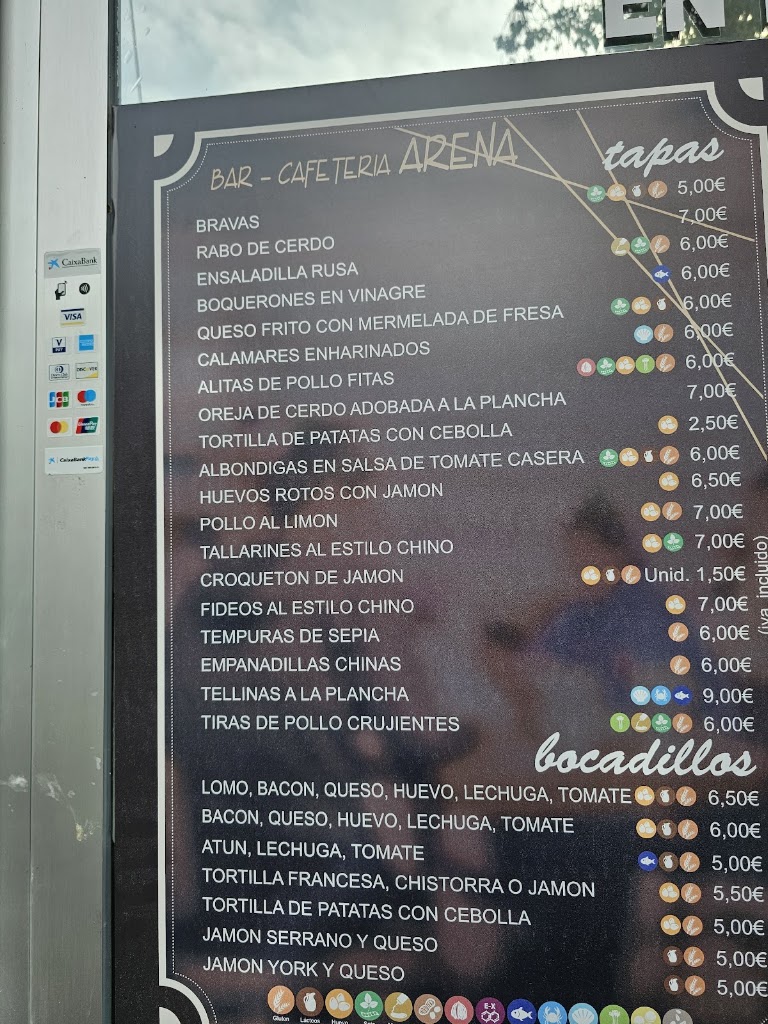 EN
BAR - CAFETERIA ARENA
tapas
BRAVAS 5,00€
RABO DE CERDO 7,00€
ENSALADILLA RUSA 6,00€
BOQUERONES EN VINAGRE 6,00€
QUESO FRITO CON MERMELADA DE FRESA 6,00€
CALAMARES ENHARINADOS 6,00€
ALITAS DE POLLO FITAS 6,00€
OREJA DE CERDO ADOBADA A LA PLANCHA 7,00€
TORTILLA DE PATATAS CON CEBOLLA 2,50€
ALBONDIGAS EN SALSA DE TOMATE CASERA 6,00€
HUEVOS ROTOS CON JAMON 6,50€
POLLO AL LIMON 7,00€
TALLARINES AL ESTILO CHINO 7,00€
CROQUETON DE JAMON Unid. 1,50€
FIDEOS AL ESTILO CHINO 7,00€
TEMPURAS DE SEPIA 6,00€
EMPANADILLAS CHINAS 6,00€
TELLINAS A LA PLANCHA 9,00€
TIRAS DE POLLO CRUJIENTES 6,00€
(iva incluido)
bocadillos
LOMO, BACON, QUESO, HUEVO, LECHUGA, TOMATE 6,50€
BACON, QUESO, HUEVO, LECHUGA, TOMATE 6,00€
ATUN, LECHUGA, TOMATE 5,00€
TORTILLA FRANCESA, CHISTORRA O JAMON 5,50€
TORTILLA DE PATATAS CON CEBOLLA 5,00€
JAMON SERRANO Y QUESO 5,00€
JAMON YORK Y QUESO 5,00€
Gluten Lácteos Huevo
CaixaBank
VISA
JCB
CaixaBank